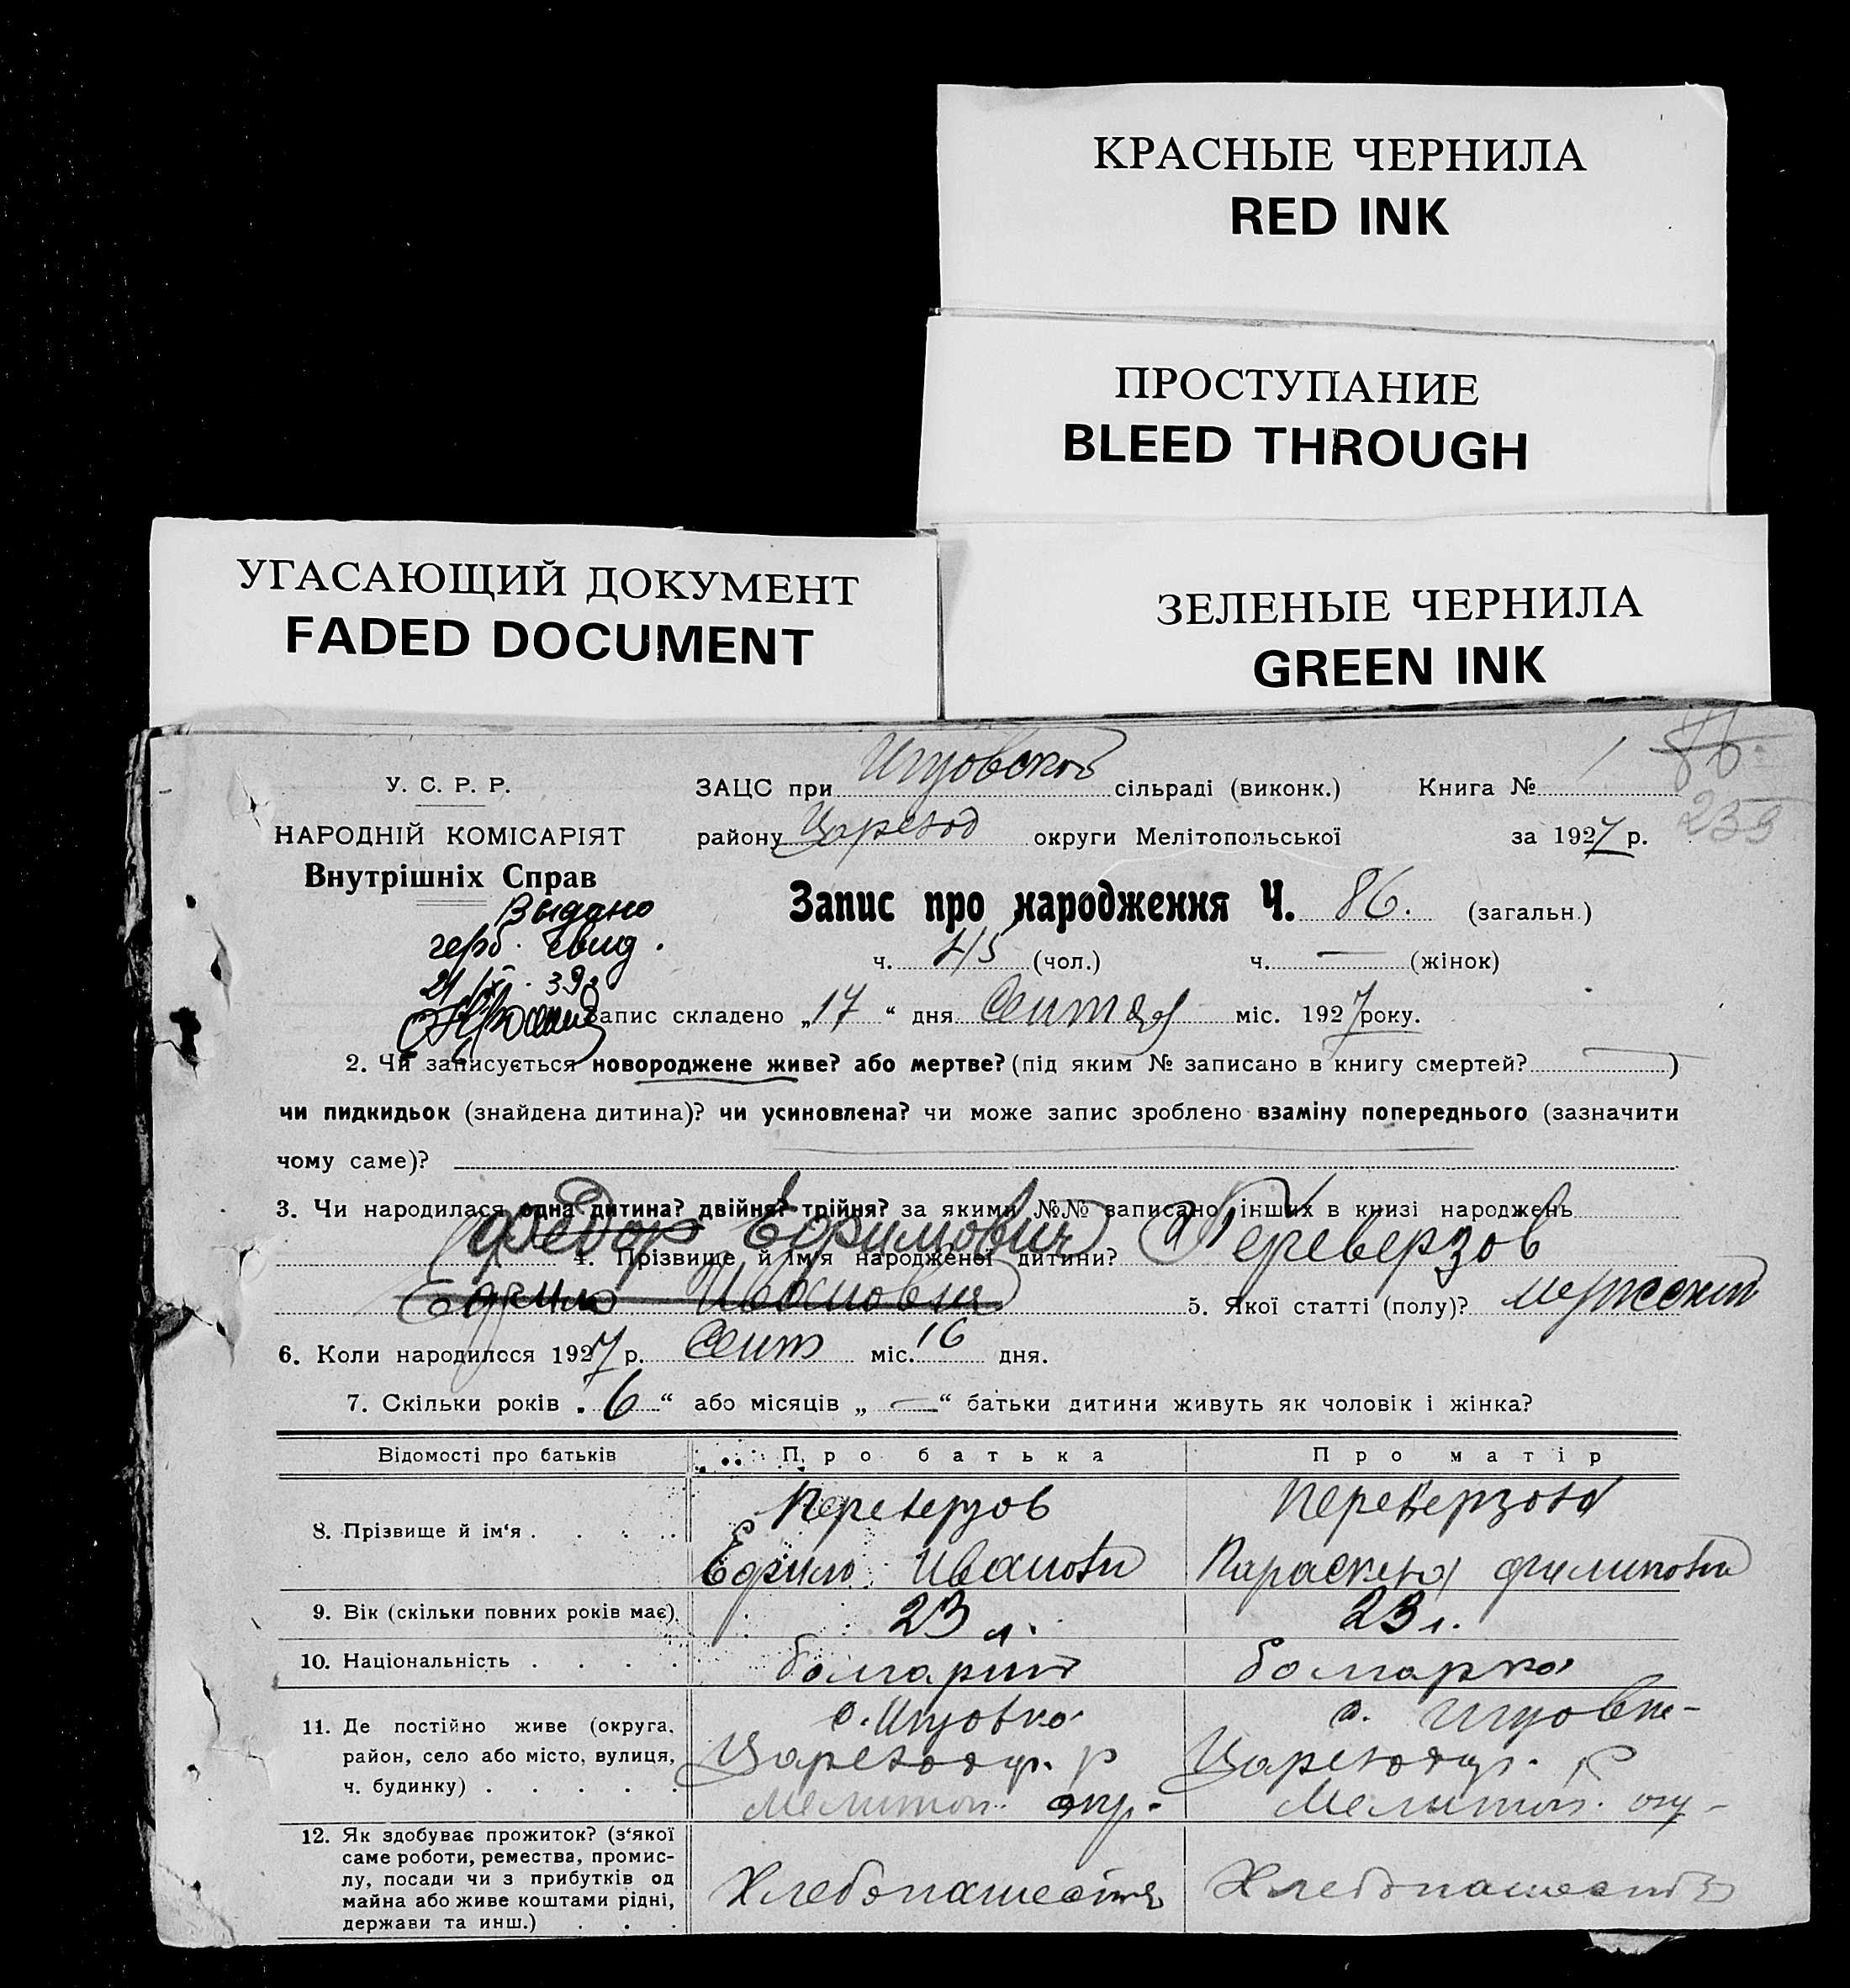 КРАСНЫЕ ЧЕРНИЛА
RED INK
ПРОСТУПАНИЕ
BLEED THROUGH
УГАСАЮЩИЙ ДОКУМЕНТ
FADED DOCUMENT
ЗЕЛЕНЫЕ ЧЕРНИЛА
GREEN INK
У. С. Р. Р.
НАРОДНІЙ КОМІСАРІЯТ
Внутрішніх Справ
Выдано
герб. свид.
ЗАЦС при сільраді (виконк.) Книга № 1 86
району округи Мелітопольської за 1927 р.
Запис про народження Ч. 86. (загальн.)
ч. 45 (чол.) ч. — (жінок)
Запис складено „17“ дня міс. 1927 року.
2. Чи записується новороджене живе? або мертве? (під яким № записано в книгу смертей? — )
чи пидкидьок (знайдена дитина)? чи усиновлена? чи може запис зроблено взаміну попереднього (зазначити
чому саме)?
3. Чи народилася одна дитина? двійня? трійня? за якими №№ записано інших в книзі народжень
Федор Ефимович Переверзов
4. Прізвище й ім'я народженої дитини?
Ефим Иванович 5. Якої статті (полу)? мужской
6. Коли народилося 1927 р. Сент міс. 16 дня.
7. Скільки років „6“ або місяців „—“ батьки дитини живуть як чоловік і жінка?
Відомості про батьків Про батька Про матір
8. Прізвище й ім'я . . . . Переверзов Переверзова
Ефим Иванови Параскева Филипови
9. Вік (скільки повних років має). 23 л. 23 л.
10. Національність . . . . болгарин болгарка
11. Де постійно живе (округа,
район, село або місто, вулиця,
ч. будинку) . . . . .
Мелитоп. окр. Мелитоп. окр
12. Як здобуває прожиток? (з'якої
саме роботи, ремества, промис-
лу, посади чи з прибутків од
майна або живе коштами рідні,
держави та инш.) . . .
Хлебопашеств Хлебопашеств